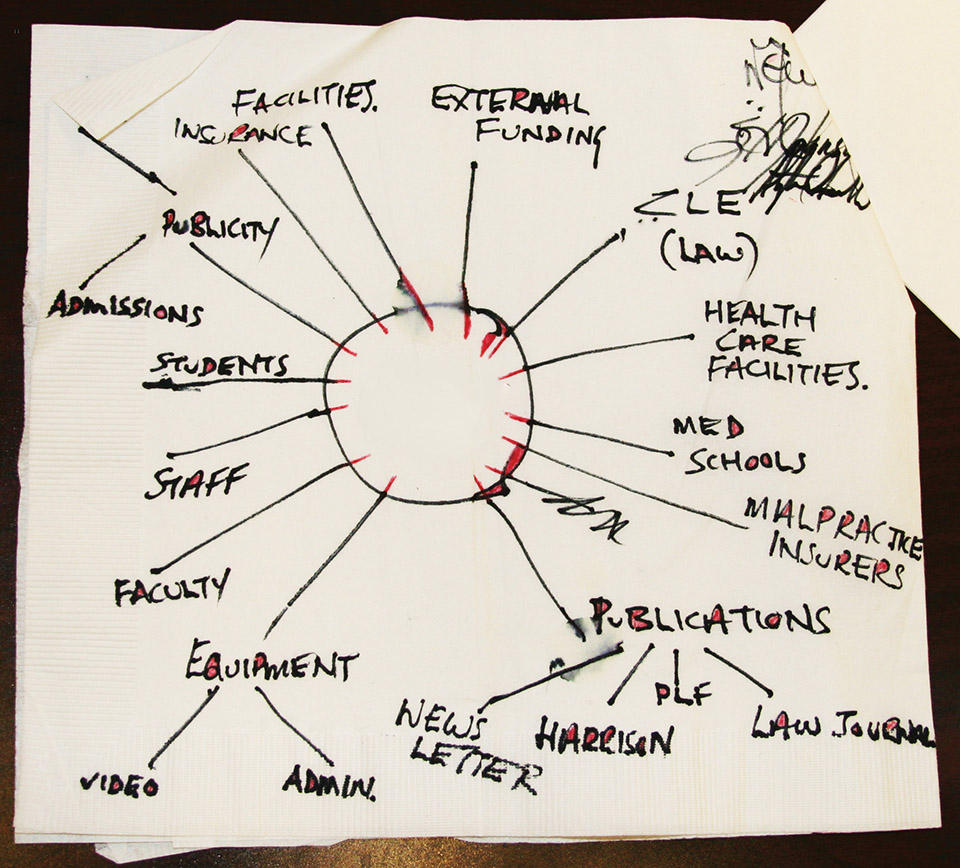 NEW
FACILITIES.
INSURANCE
EXTERNAL
FUNDING
CLE
(LAW)
PUBLICITY
ADMISSIONS
HEALTH
CARE
FACILITIES.
STUDENTS
MED
SCHOOLS
STAFF
MALPRACTICE
INSURERS
FACULTY
PUBLICATIONS
EQUIPMENT
NEWS
LETTER
HARRISON
PLF
LAW JOURNAL
VIDEO
ADMIN.